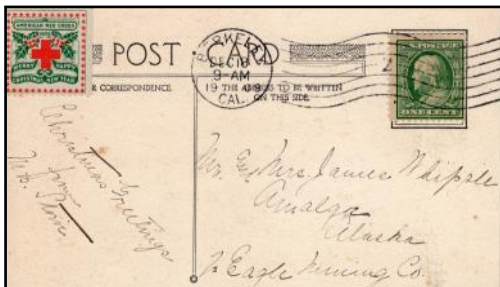 AMERICAN RED CROSS
MERRY HAPPY
CHRISTMAS NEW YEAR
POST CARD
BERKELEY
DEC 18
9-AM
1909
CAL.
CORRESPONDENCE.
THE ADDRESS TO BE WRITTEN
ON THIS SIDE.
U.S. POSTAGE
ONE CENT
Christmas Greetings
from
Mr. and Mrs. James Whipple
Amalga
Alaska
% Eagle Mining Co.